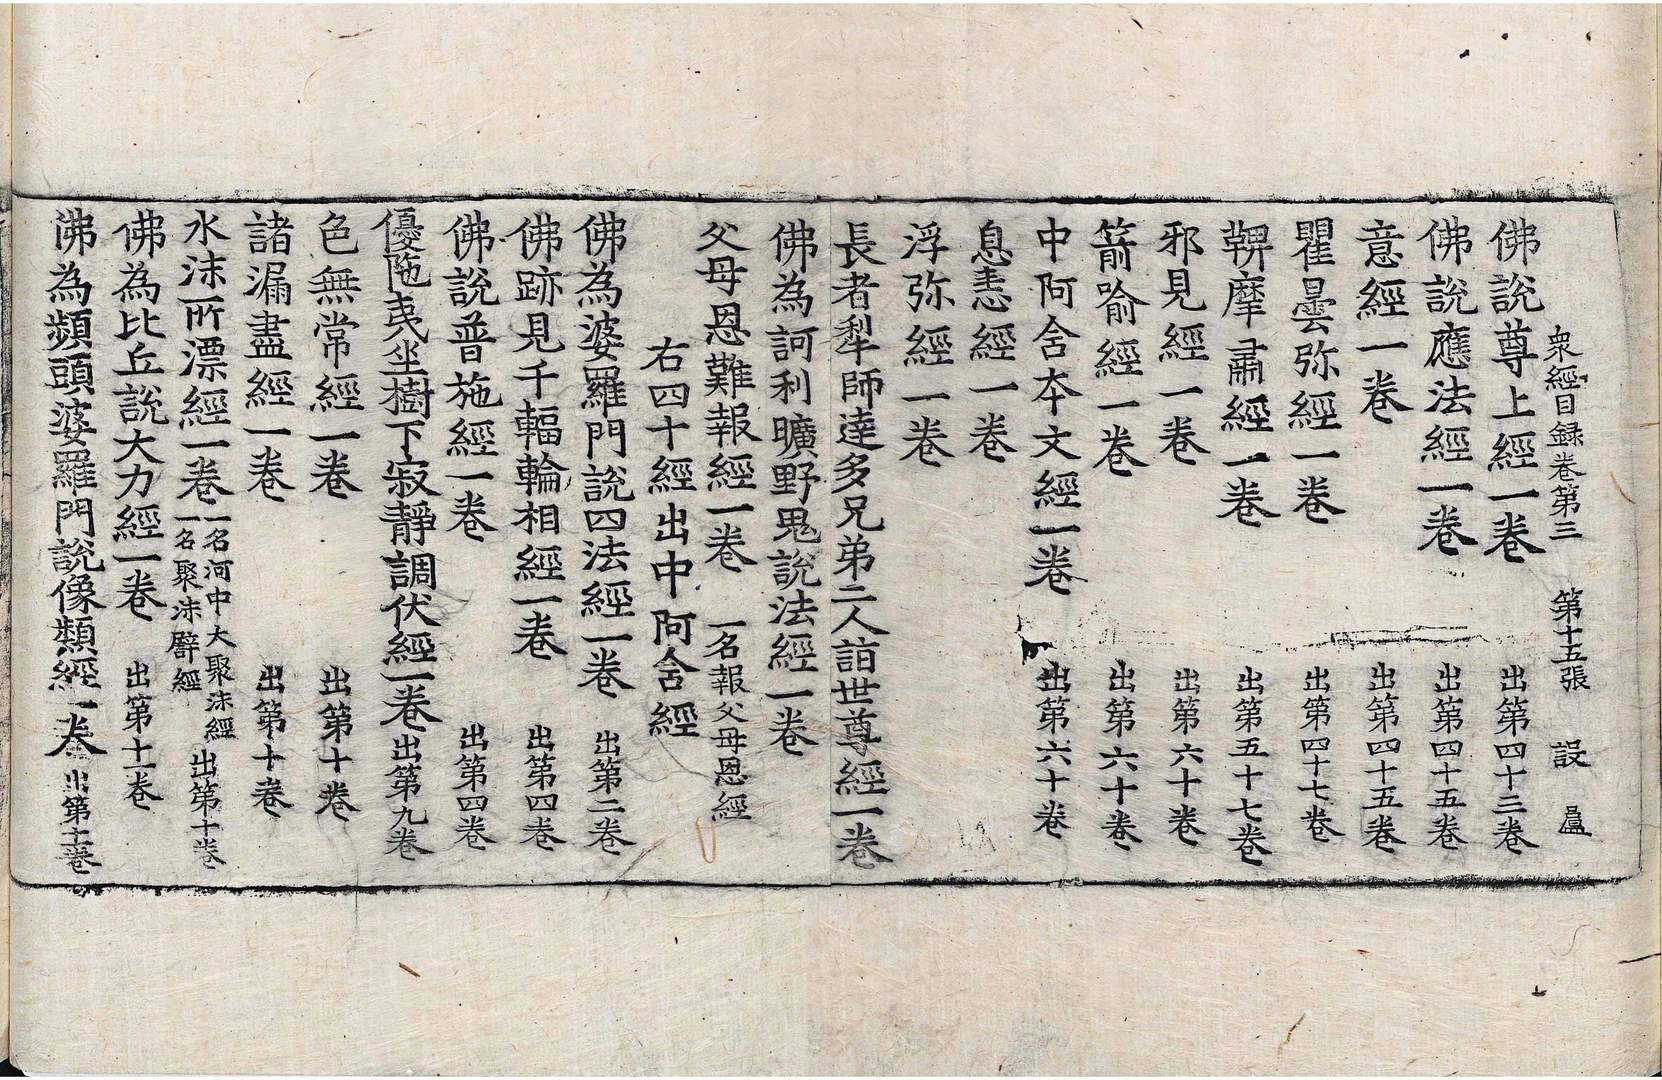 衆經目録卷第三 第十五張 設
佛說尊上經一卷 出第四十三卷
佛說應法經一卷 出第四十五卷
意經一卷 出第四十五卷
瞿曇弥經一卷 出第四十七卷
鞞摩肅經一卷 出第五十七卷
邪見經一卷 出第六十卷
箭喻經一卷 出第六十卷
中阿含本文經一卷 出第六十卷
息恚經一卷
浮弥經一卷
長者犁師達多兄弟二人詣世尊經一卷
佛為訶利曠野鬼說法經一卷
父母恩難報經一卷 一名報父母恩經
右四十經出中阿含經
佛為婆羅門說四法經一卷 出第二卷
佛跡見千輻輪相經一卷 出第四卷
佛說普施經一卷 出第四卷
優陁夷坐樹下寂靜調伏經一卷 出第九卷
色無常經一卷 出第十卷
諸漏盡經一卷 出第十卷
水沫所漂經一卷 一名河中大聚沫經 一名聚沫譬經 出第十卷
佛為比丘說大力經一卷 出第十一卷
佛為頻頭婆羅門說像類經一卷 出第十二卷